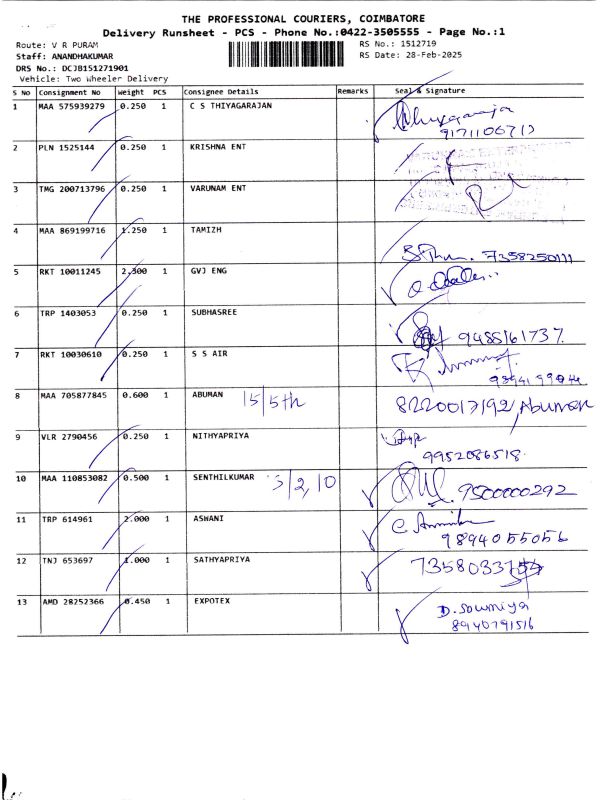 THE PROFESSIONAL COURIERS, COIMBATORE
Delivery Runsheet - PCS - Phone No.:0422-3505555 - Page No.:1
Route: V R PURAM
RS No.: 1512719
Staff: ANANDHAKUMAR
RS Date: 28-Feb-2025
DRS No.: DCJB151271901
Vehicle: Two Wheeler Delivery
S No Consignment No Weight PCS Consignee Details Remarks Seal & Signature
1 MAA 575939279 0.250 1 C S THIYAGARAJAN
2 PLN 1525144 0.250 1 KRISHNA ENT
3 TMG 200713796 0.250 1 VARUNAM ENT
4 MAA 869199716 1.250 1 TAMIZH 7358250111
5 RKT 10011245 2.300 1 GVJ ENG
6 TRP 1403053 0.250 1 SUBHASREE 9488161737.
7 RKT 10030610 0.250 1 S S AIR
8 MAA 705877845 0.600 1 ABUMAN 15/5th 8220017192, Abuman
9 VLR 2790456 0.250 1 NITHYAPRIYA
9952086518.
10 MAA 110853082 0.500 1 SENTHILKUMAR 3/2, 10 9500000292
11 TRP 614961 2.000 1 ASWANI
9894055056
12 TNJ 653697 1.000 1 SATHYAPRIYA
13 AMD 28252366 0.450 1 EXPOTEX D. Sowmiya
8940791516